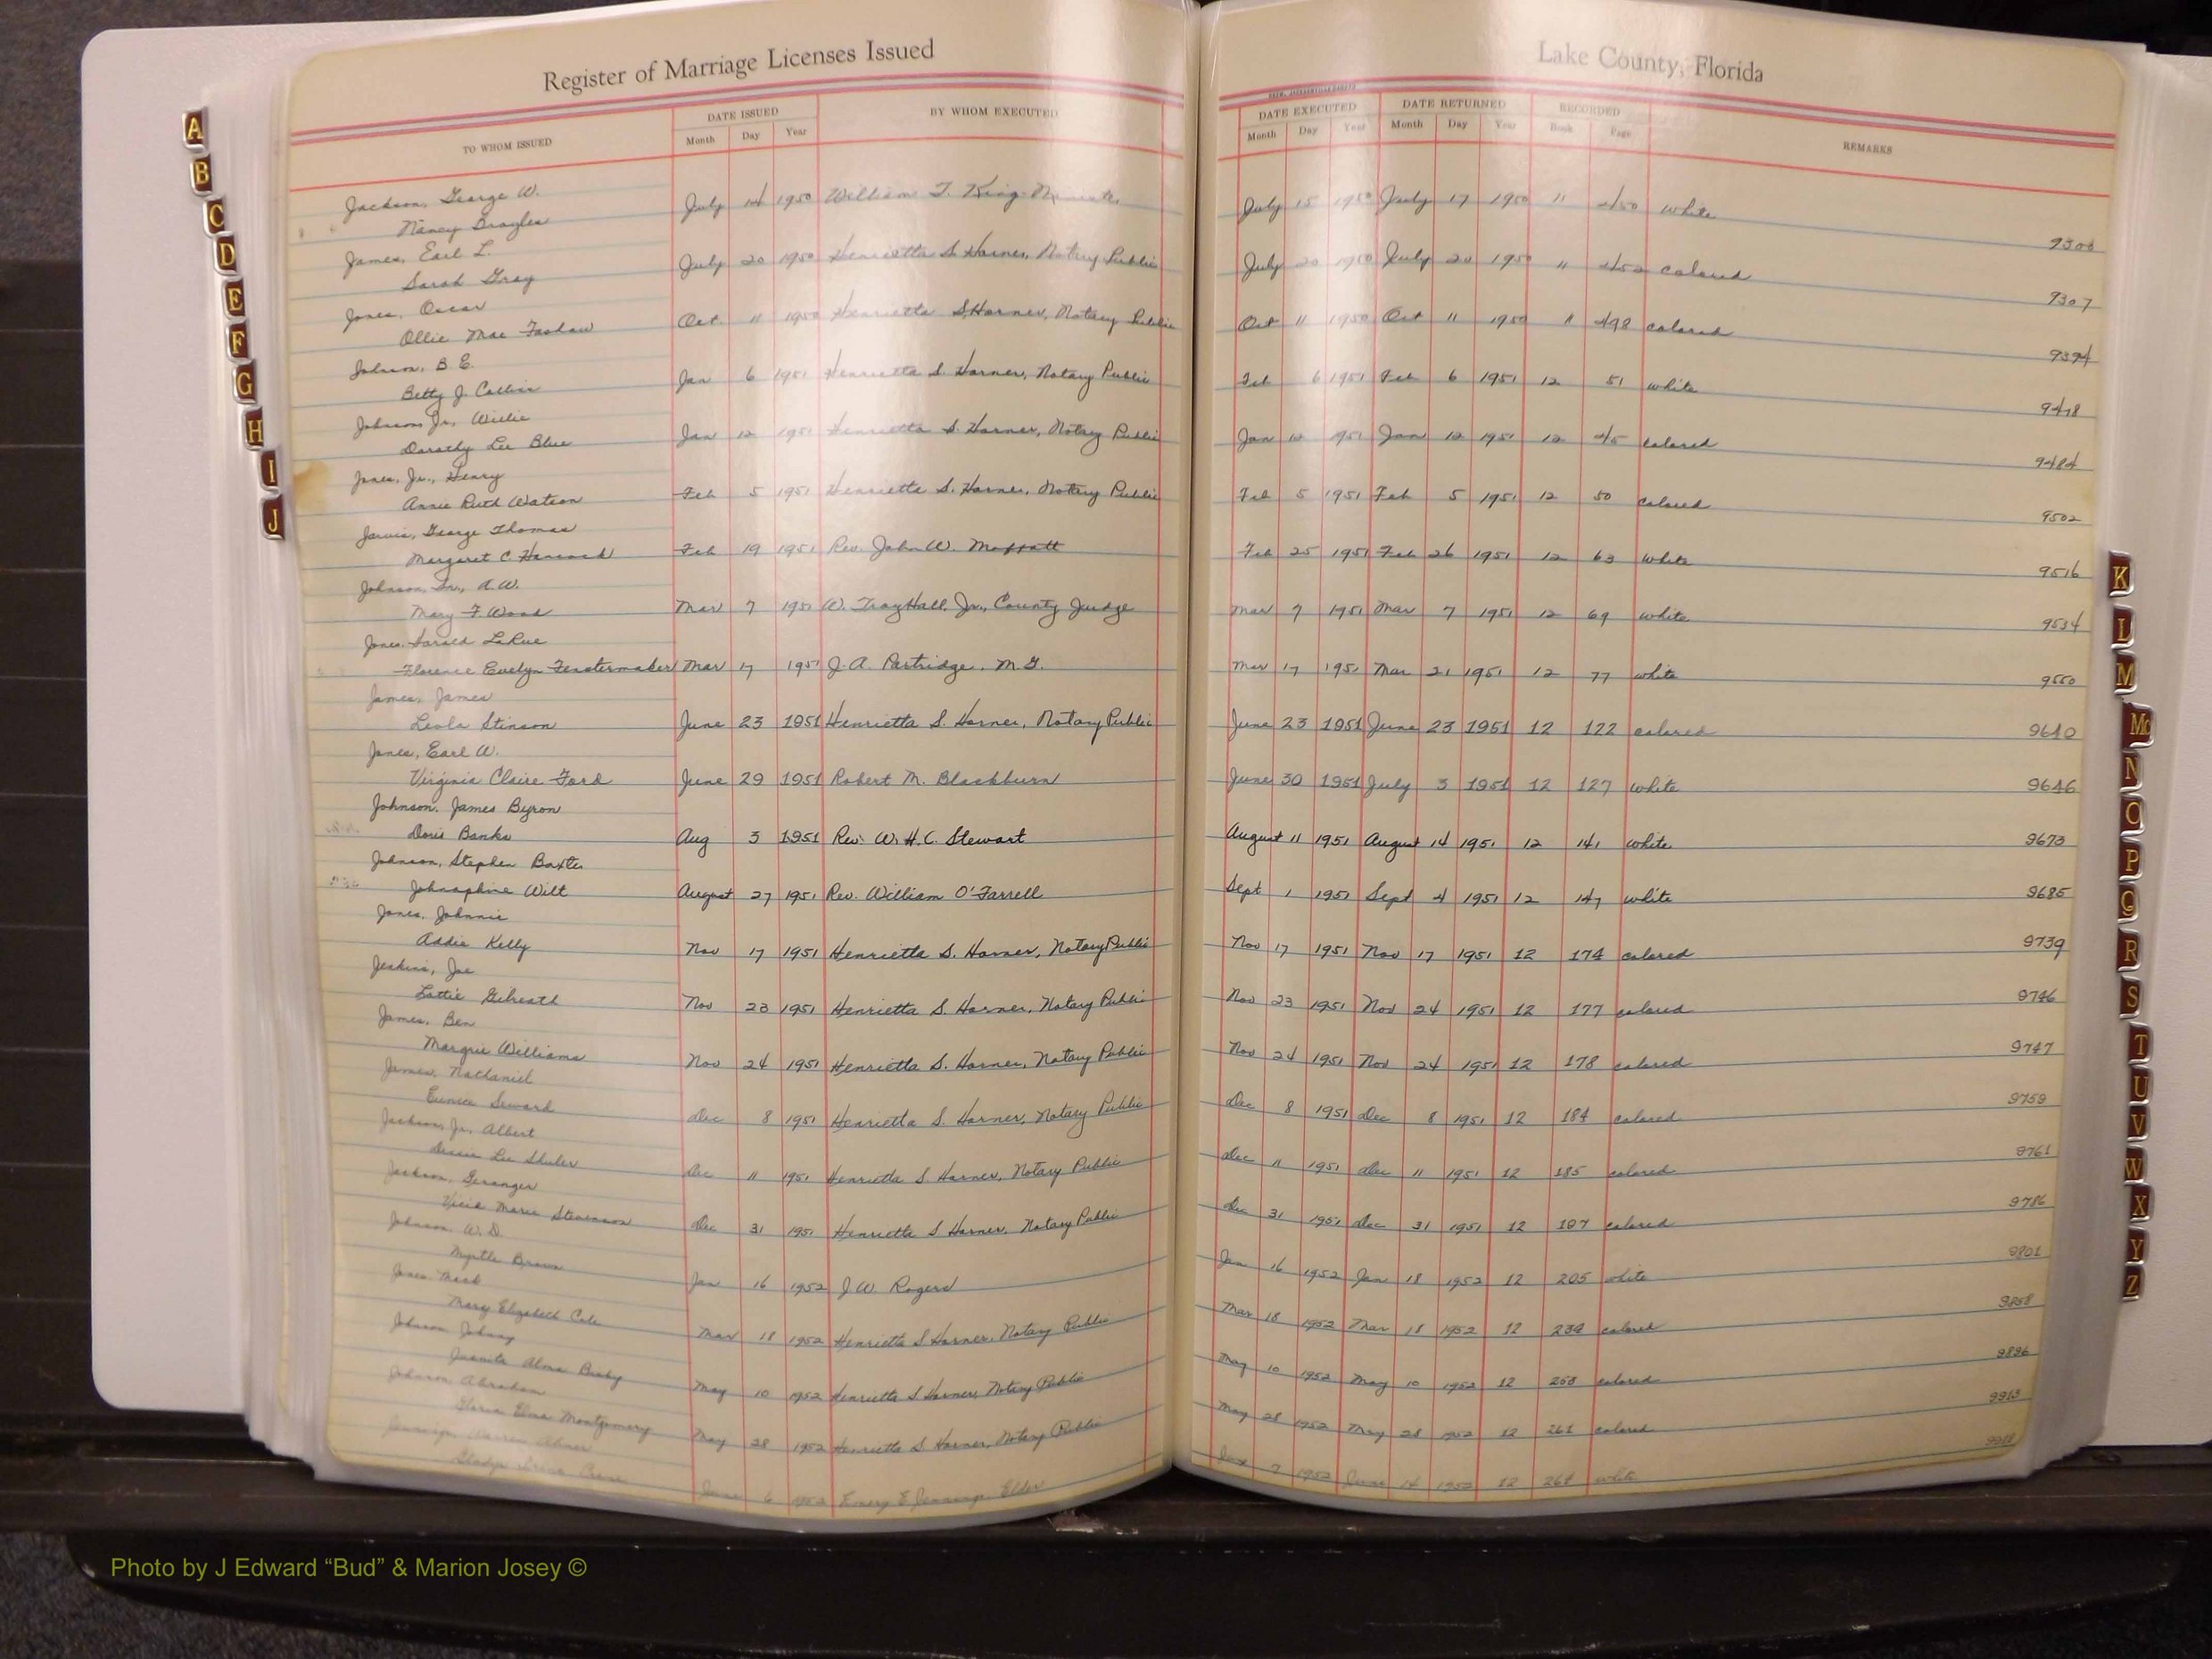 Register of Marriage Licenses Issued
Lake County, Florida
TO WHOM ISSUED
DATE ISSUED
Month Day Year
BY WHOM EXECUTED
DATE EXECUTED
Month Day Year
DATE RETURNED
Month Day Year
RECORDED
Book Page
REMARKS
Jackson, George W.
Nancy July 14 1950 William T. King July 15 1950 July 17 1950 11 450 white 9306
James, Earl L.
Sarah Gray July 20 1950 Henrietta S. Harner, Notary Public July 20 1950 July 20 1950 11 452 colored 9307
Jones, Oscar
Ollie Mae Fashaw Oct. 11 1950 Henrietta S. Harner, Notary Public Oct 11 1950 Oct 11 1950 11 498 colored 9394
Johnson, B. E.
Betty J. Collins Jan 6 1951 Henrietta S. Harner, Notary Public Feb 6 1951 Feb 6 1951 12 51 white 9478
Johnson Jr., Willie
Dorothy Lee Blue Jan 12 1951 Henrietta S. Harner, Notary Public Jan 12 1951 Jan 12 1951 12 45 colored 9484
Jones, Jr., Henry
Annie Ruth Watson Feb 5 1951 Henrietta S. Harner, Notary Public Feb 5 1951 Feb 5 1951 12 50 colored 9502
Jarvis, George Thomas
Margaret C. Hancock Feb 19 1951 Rev. John W. Moffatt Feb 25 1951 Feb 26 1951 12 63 white 9516
Johnson, Sr., A.W.
Mary F. Wood Mar 7 1951 W. Troy Hall, Jr., County Judge Mar 7 1951 Mar 7 1951 12 69 white 9534
Jones, Harold LaRue
Florence Evelyn Fenstermaker Mar 17 1951 J. A. Partridge, M.G. Mar 17 1951 Mar 21 1951 12 77 white 9550
James, James
Leola Stinson June 23 1951 Henrietta S. Harner, Notary Public June 23 1951 June 23 1951 12 122 colored 9640
Jones, Earl W.
Virginia Claire Ford June 29 1951 Robert M. Blackburn June 30 1951 July 3 1951 12 127 white 9646
Johnson, James Byron
Doris Banks Aug 3 1951 Rev. W. H. C. Stewart August 11 1951 August 14 1951 12 141 white 9673
Johnson, Stephen Baxter
Johnaphine Wilt August 27 1951 Rev. William O'Farrell Sept 1 1951 Sept 4 1951 12 147 white 9685
Jones, Johnnie
Addie Kelly Nov 17 1951 Henrietta S. Harner, Notary Public Nov 17 1951 Nov 17 1951 12 174 colored 9739
Jenkins, Joe
Lottie Gilreath Nov 23 1951 Henrietta S. Harner, Notary Public Nov 23 1951 Nov 24 1951 12 177 colored 9746
James, Ben
Margrie Williams Nov 24 1951 Henrietta S. Harner, Notary Public Nov 24 1951 Nov 24 1951 12 178 colored 9747
James, Nathaniel
Eunice Seward Dec 8 1951 Henrietta S. Harner, Notary Public Dec 8 1951 Dec 8 1951 12 184 colored 9759
Jackson, Jr., Albert
Dessie Lee Shuler Dec 11 1951 Henrietta S. Harner, Notary Public Dec 11 1951 Dec 11 1951 12 185 colored 9761
Jackson, Geranger
Marie Stevenson Dec 31 1951 Henrietta S Harner, Notary Public Dec 31 1951 Dec 31 1951 12 197 colored 9786
Johnson, W. D.
Myrtle Brown Jan 16 1952 J. W. Rogers Jan 16 1952 Jan 18 1952 12 205 white 9801
Jones, Mack
Mary Elizabeth Cole Mar 18 1952 Henrietta S. Harner, Notary Public Mar 18 1952 Mar 18 1952 12 234 colored 9858
Johnson, Johnny
Juanita Alma May 10 1952 Henrietta S. Harner, Notary Public May 10 1952 May 10 1952 12 253 colored 9896
Johnson, Abraham
Gloria Elma Montgomery May 28 1952 Henrietta S Harner, Notary Public May 28 1952 May 28 1952 12 261 colored 9913
Gladys Irene June 6 1952 Emery E Jennings Elder June 7 1952 June 14 1952 12 264 white
A
B
C
D
E
F
G
H
I
J
K
L
M
Mc
N
O
P
Q
R
S
T
U
V
W
X
Y
Z
Photo by J Edward “Bud” & Marion Josey ©